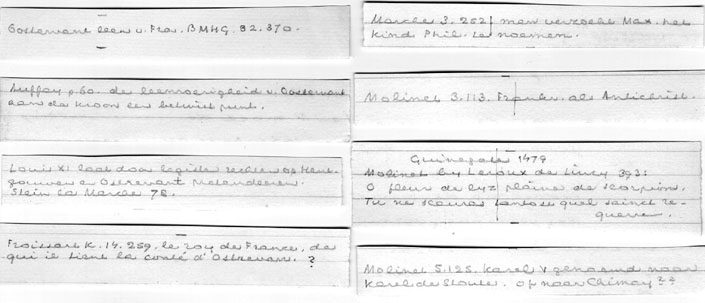 Oostevant leen v. Fra. BMHG. 32. 370.
Duffay p. 60. de leenroerigheid v. Oostevant
aan de kroon een betwist punt.
Louis XI laat door legisten rechten op Hene-
gouwen en Ostrevant pretendeeren.
Stein la Marche 78.
Froissart K. 14. 259. le roy de France, de
qui il tient la conté d'Ostrevan. ?
Marche 3. 252/ men verzocht Max. het
kind Phil. te noemen.
Molinet 3. 113. Frankr. als Antichrist.
Guinegate 1479
Molinet by Leroux de Lincy 393:
O fleur de lyz pleine de scorpions,
Tu ne scauras quel sainct re-
querre.
Molinet 5. 125. Karel V genoemd naar
Karel de Stoute. op naar Chimay??